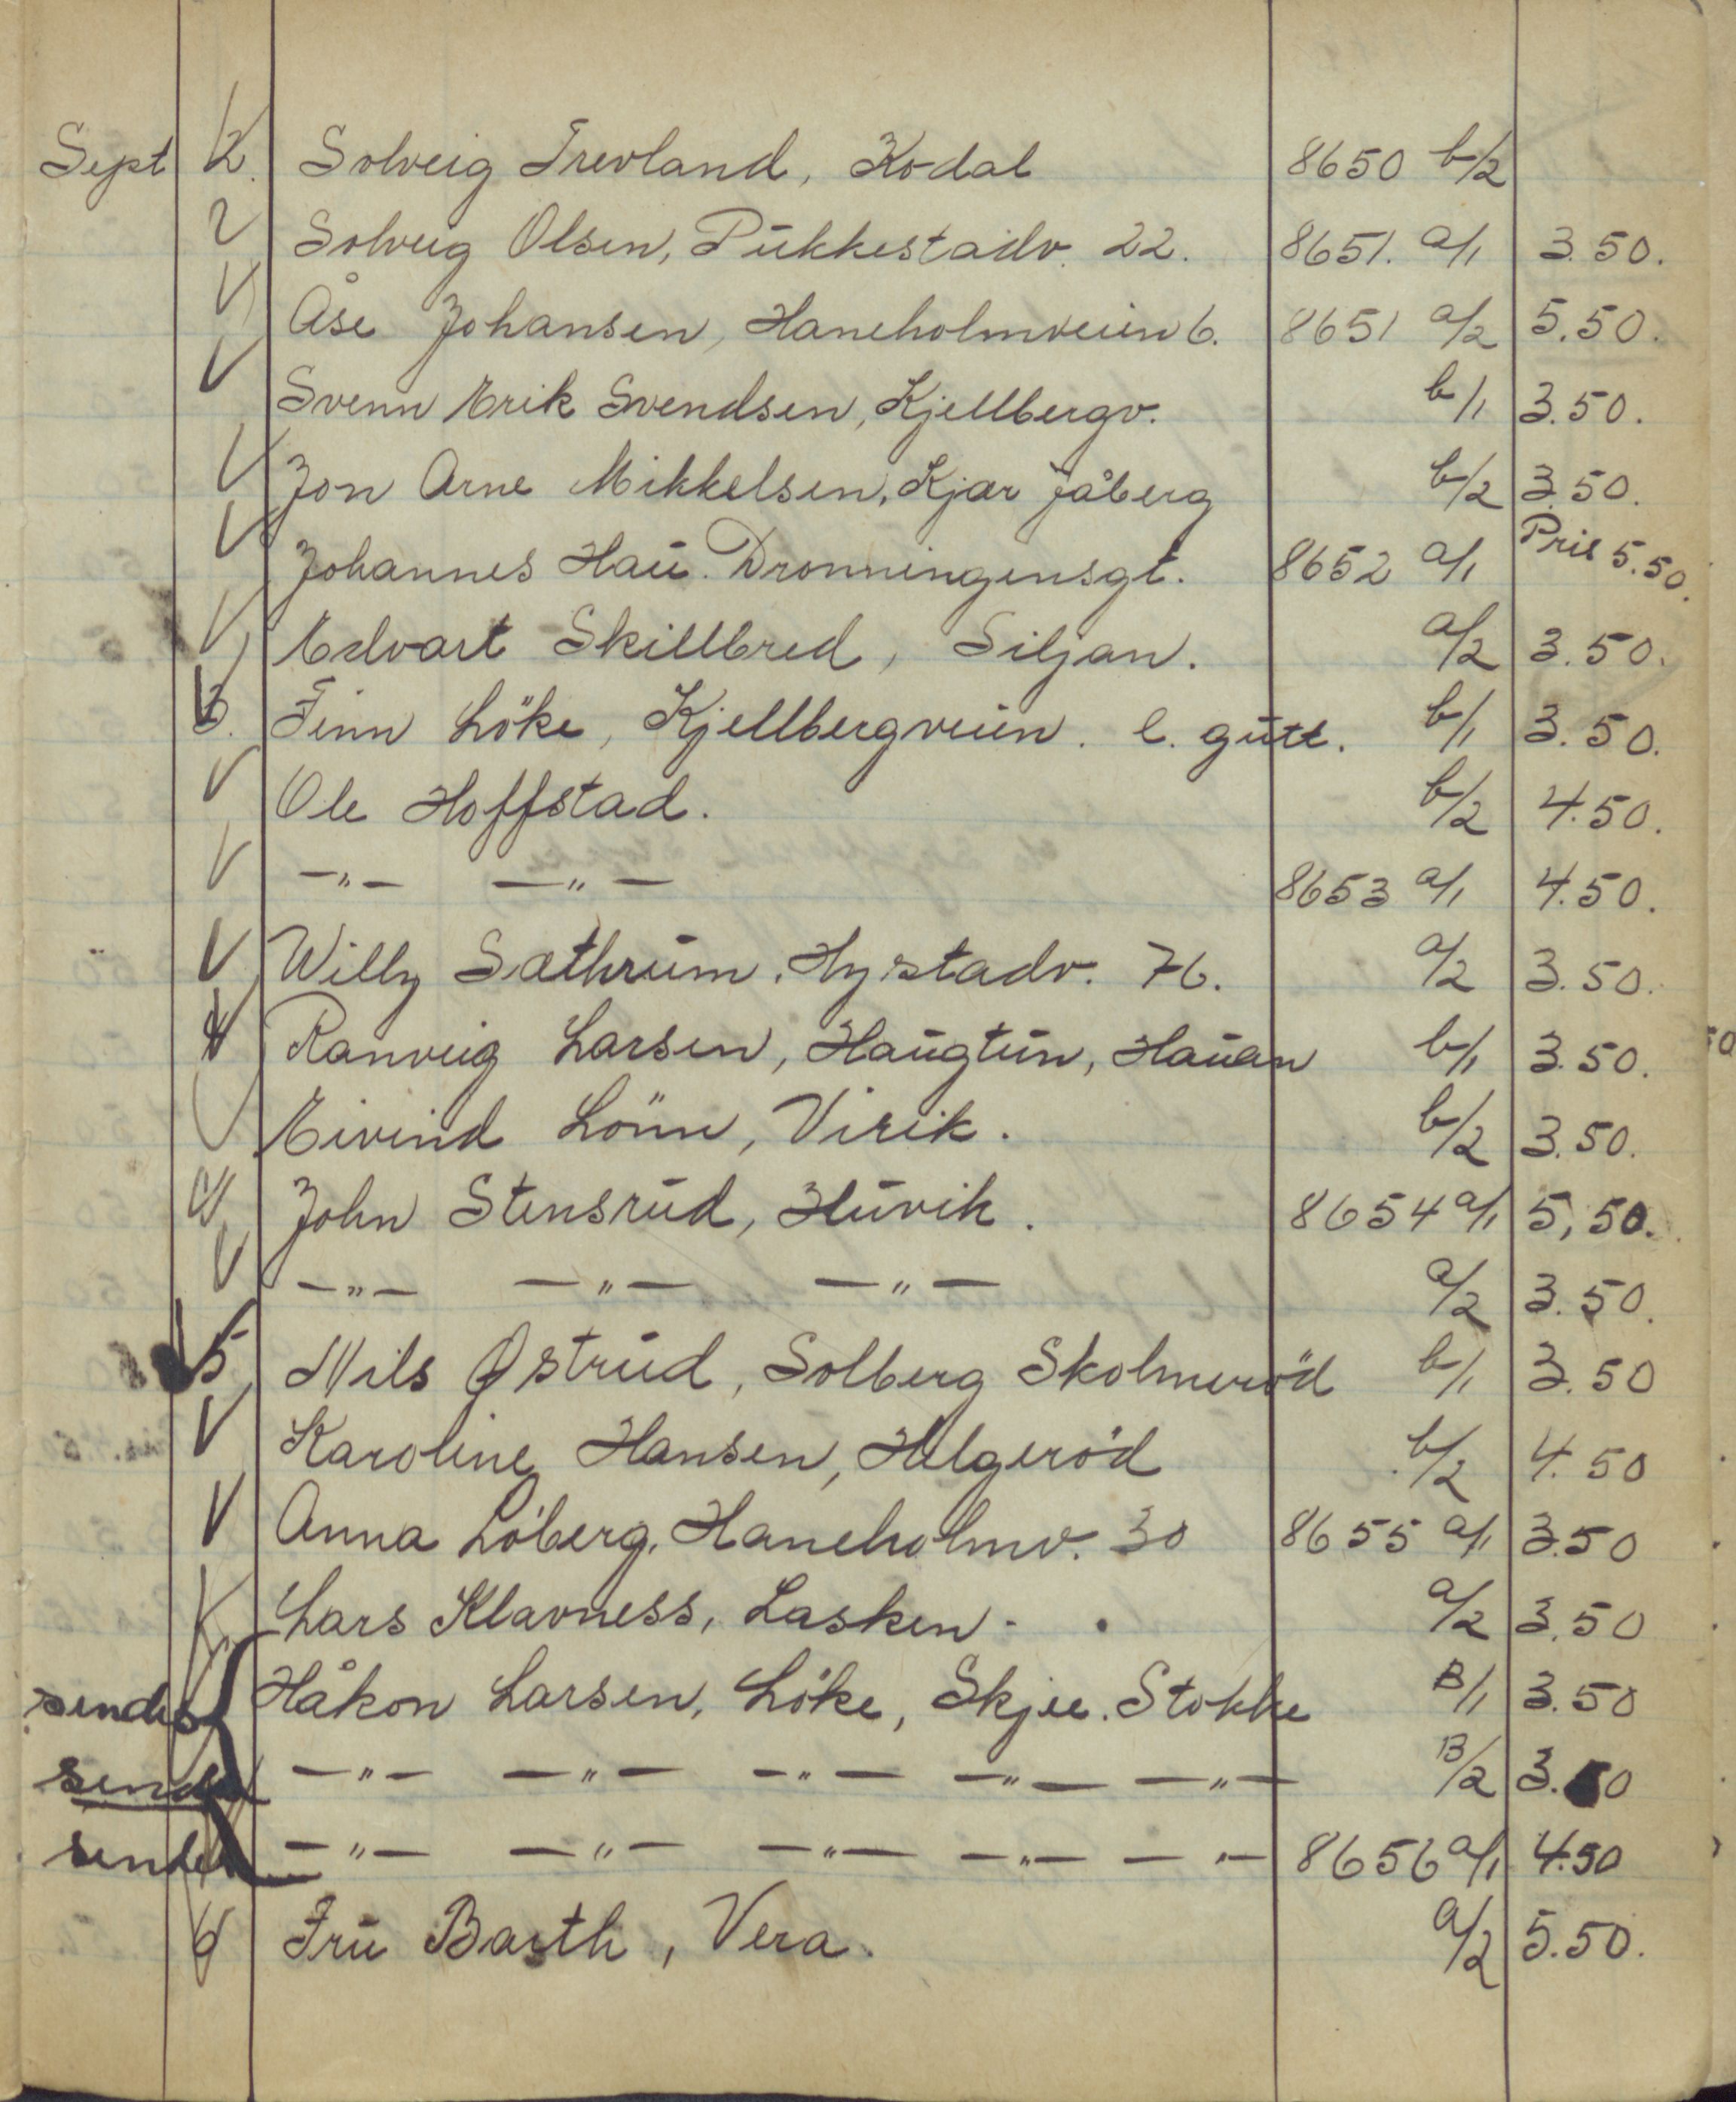 Sept 2. Solveig Trevland, Kodal 8650 b/2
2 Solveig Olsen, Pukkestadv. 22. 8651. a/1 3.50.
Åse Johansen, Haneholmveien 6. 8651 a/2 5.50.
Svenn Erik Svendsen, Kjellbergv. b/1 3.50.
Jon Arne Mikkelsen, Kjær Jåberg b/2 3.50.
Johannes Hau. Dronningensgt. 8652 a/1 Pris 5.50.
Edvart Skillbred, Siljan. a/2 3.50.
3. Finn Löke, Kjellbergveien. l. gutt. b/1 3.50.
Ole Hoffstad. b/2 4.50.
-"- -"- 8653 a/1 4.50.
Willy Sæthrum, Hystadv. 76. a/2 3.50.
4 Ranveig Larsen, Haugtun, Hauan b/1 3.50.
Eivind Lönn, Virik. b/2 3.50.
4 John Stensrud, Huvik. 8654 a/1 5,50.
-"- -"- -"- a/2 3.50.
5 Nils Østrud, Solberg Skolmeröd b/1 3.50
Karoline Hansen, Helgeröd b/2 4.50
Anna Löberg, Haneholmv. 30 8655 a/1 3.50
Lars Klavness, Lasken. a/2 3.50
sendes Håkon Larsen, Löke, Skjee. Stokke B/1 3.50
sendes -"- -"- -"- -"- -"- B/2 3.50
sendes -"- -"- -"- -"- -"- 8656 a/1 4.50
6 Fru Barth, Vera. a/2 5.50.